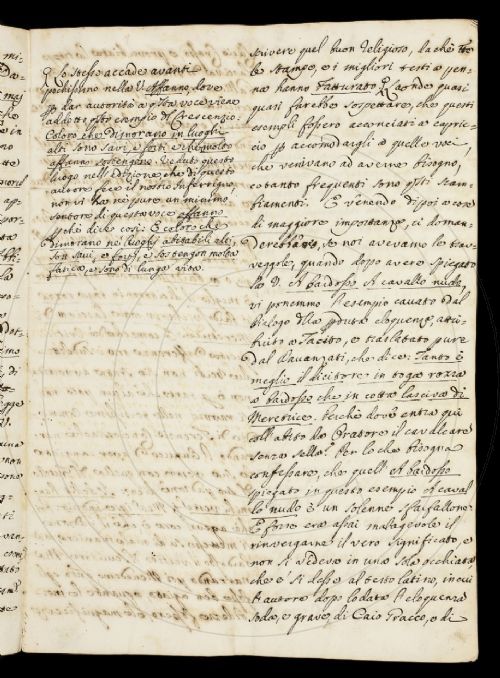 Lo stesso accade avanti
pochissimo nella V. affanno, dove
p dar autorità a qsta voce viene
addotto qsto esempio di Crescenzio:
Coloro che dimorano in luoghi
alti sono savi, e forti e di molto
affanno sostengono. Veduto questo
luogo nell'Edizione che di questo
autore fece il nostro Infervigno,
non vi ha neppure un minimo
sentore di questa voce affanno
Apché dice così: E coloro che
dimorano ne' luoghi abitabili alti
son savi, e forti, e sostengon molta
fatica, e sono di lunga vita.
scrivere quel buon Religioso, laché tte
le stampe, e i migliori testi a pen-
na hanno fatturato. Laonde quasi
quasi farebbe sospettare, che questi
esempli fossero acconciati a capric-
cio p accomodargli a quelle voci,
che venivano ad averne bisogno,
cotanto frequenti sono qsti scam-
biamenti. E venendo di poi a cose
di maggiore importanza, ci doman-
derebbero, se noi avevamo le trav-
veggole, quando dopo avere spiegato
la V. A baidosso A cavallo nudo,
vi ponemmo l'esempio cavato dal
Dialogo della pduta eloquenza, attri-
buito a Tacito, e traslatato pure
dal Davanzati, che dice: Tanto è
meglio il dicitore in toga rozza
a baidosso che in cotta lasciva di
Meretrice. Perché dov'è entra qui
coll'abito de Oratore il cavalcare
senza sella? Per lo che bisogna
confessare, che quell'A baidosso
spiegato in questo esempio A caval
lo nudo è un solenne sfarfallone.
E forse era assai malagevole il
rinvergarne il vero significato, e
non si vedeva in una sola occhiata
che si desse al testo latino, in cui
l'autore dopo lodata l'eloquenza
soda, e grave di Caio Gracco, e di